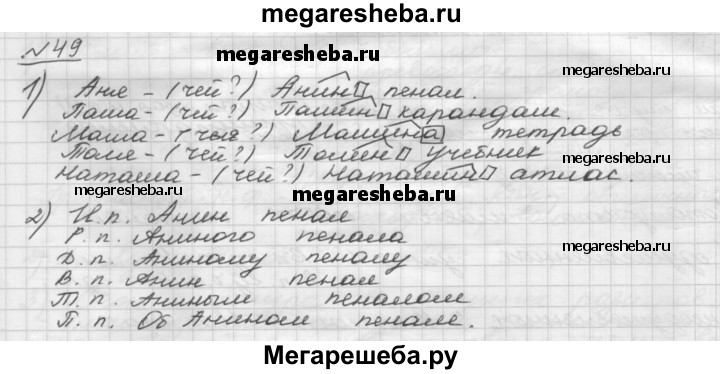 megaresheba.ru
№49
megaresheba.ru
1) Аня – (чей?) Анин пенал.
megaresheba.ru
Паша – (чей?) Пашин карандаш.
Маша – (чья?) Машина тетрадь
Толя – (чей?) Толин учебник
Наташа – (чей?) Наташин атлас.
megaresheba.ru
megaresheba.ru
2) И.п. Анин пенал
Р.п. Аниного пенала
megaresheba.ru
Д.п. Аниному пеналу
В.п. Анин пенал
Т.п. Аниным пеналом
П.п. Об Анином пенале.
Мегарешеба.ру